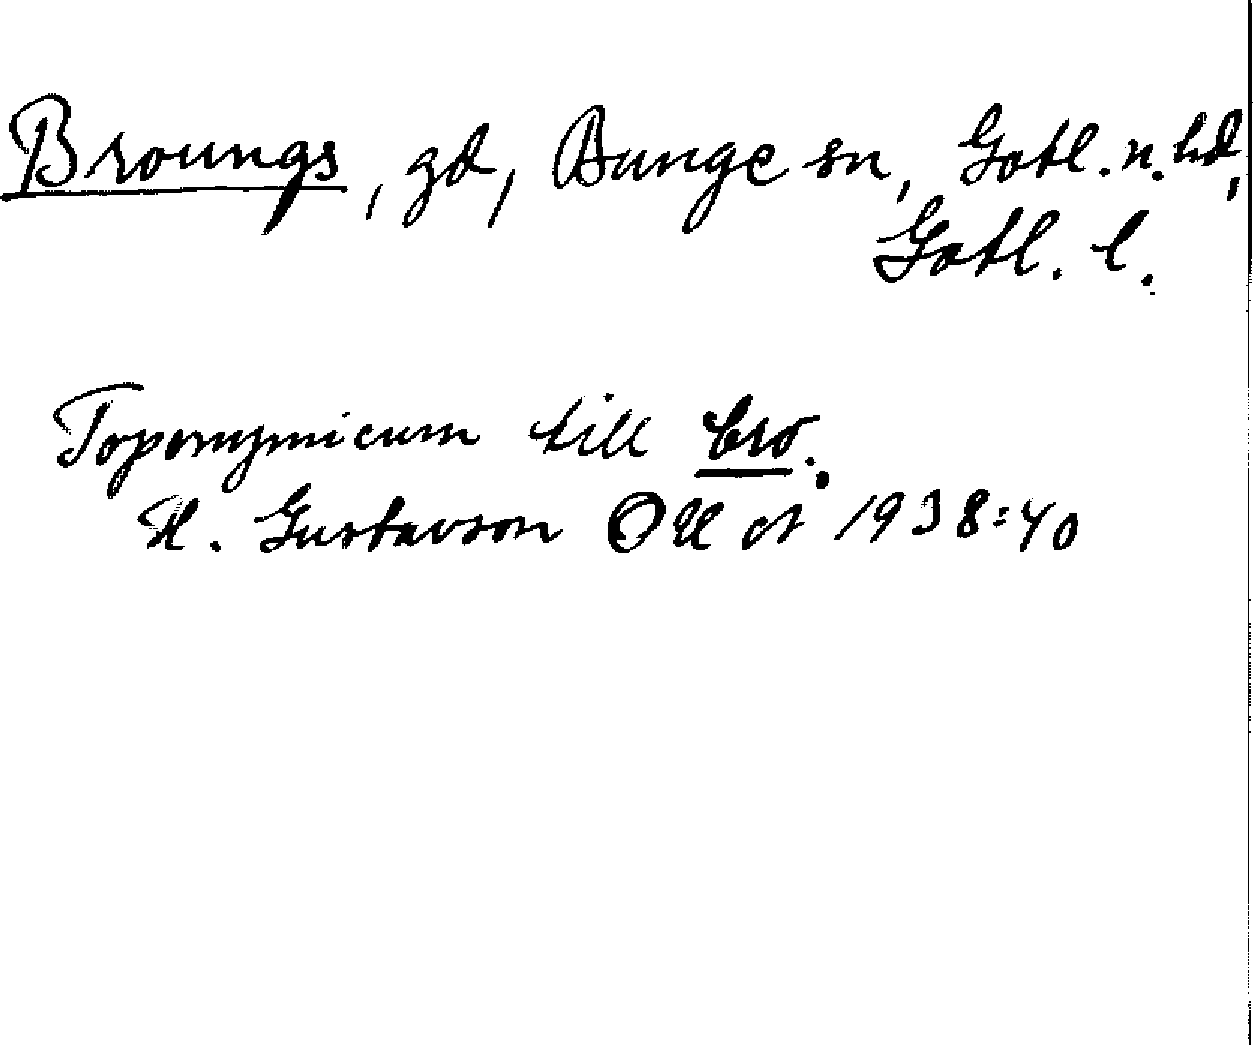 Broungs, gd, Bunge sn, Gotl. n. hd,
Gotl. l.
Toponymicum till bro.
H. Gustavson 1938:40